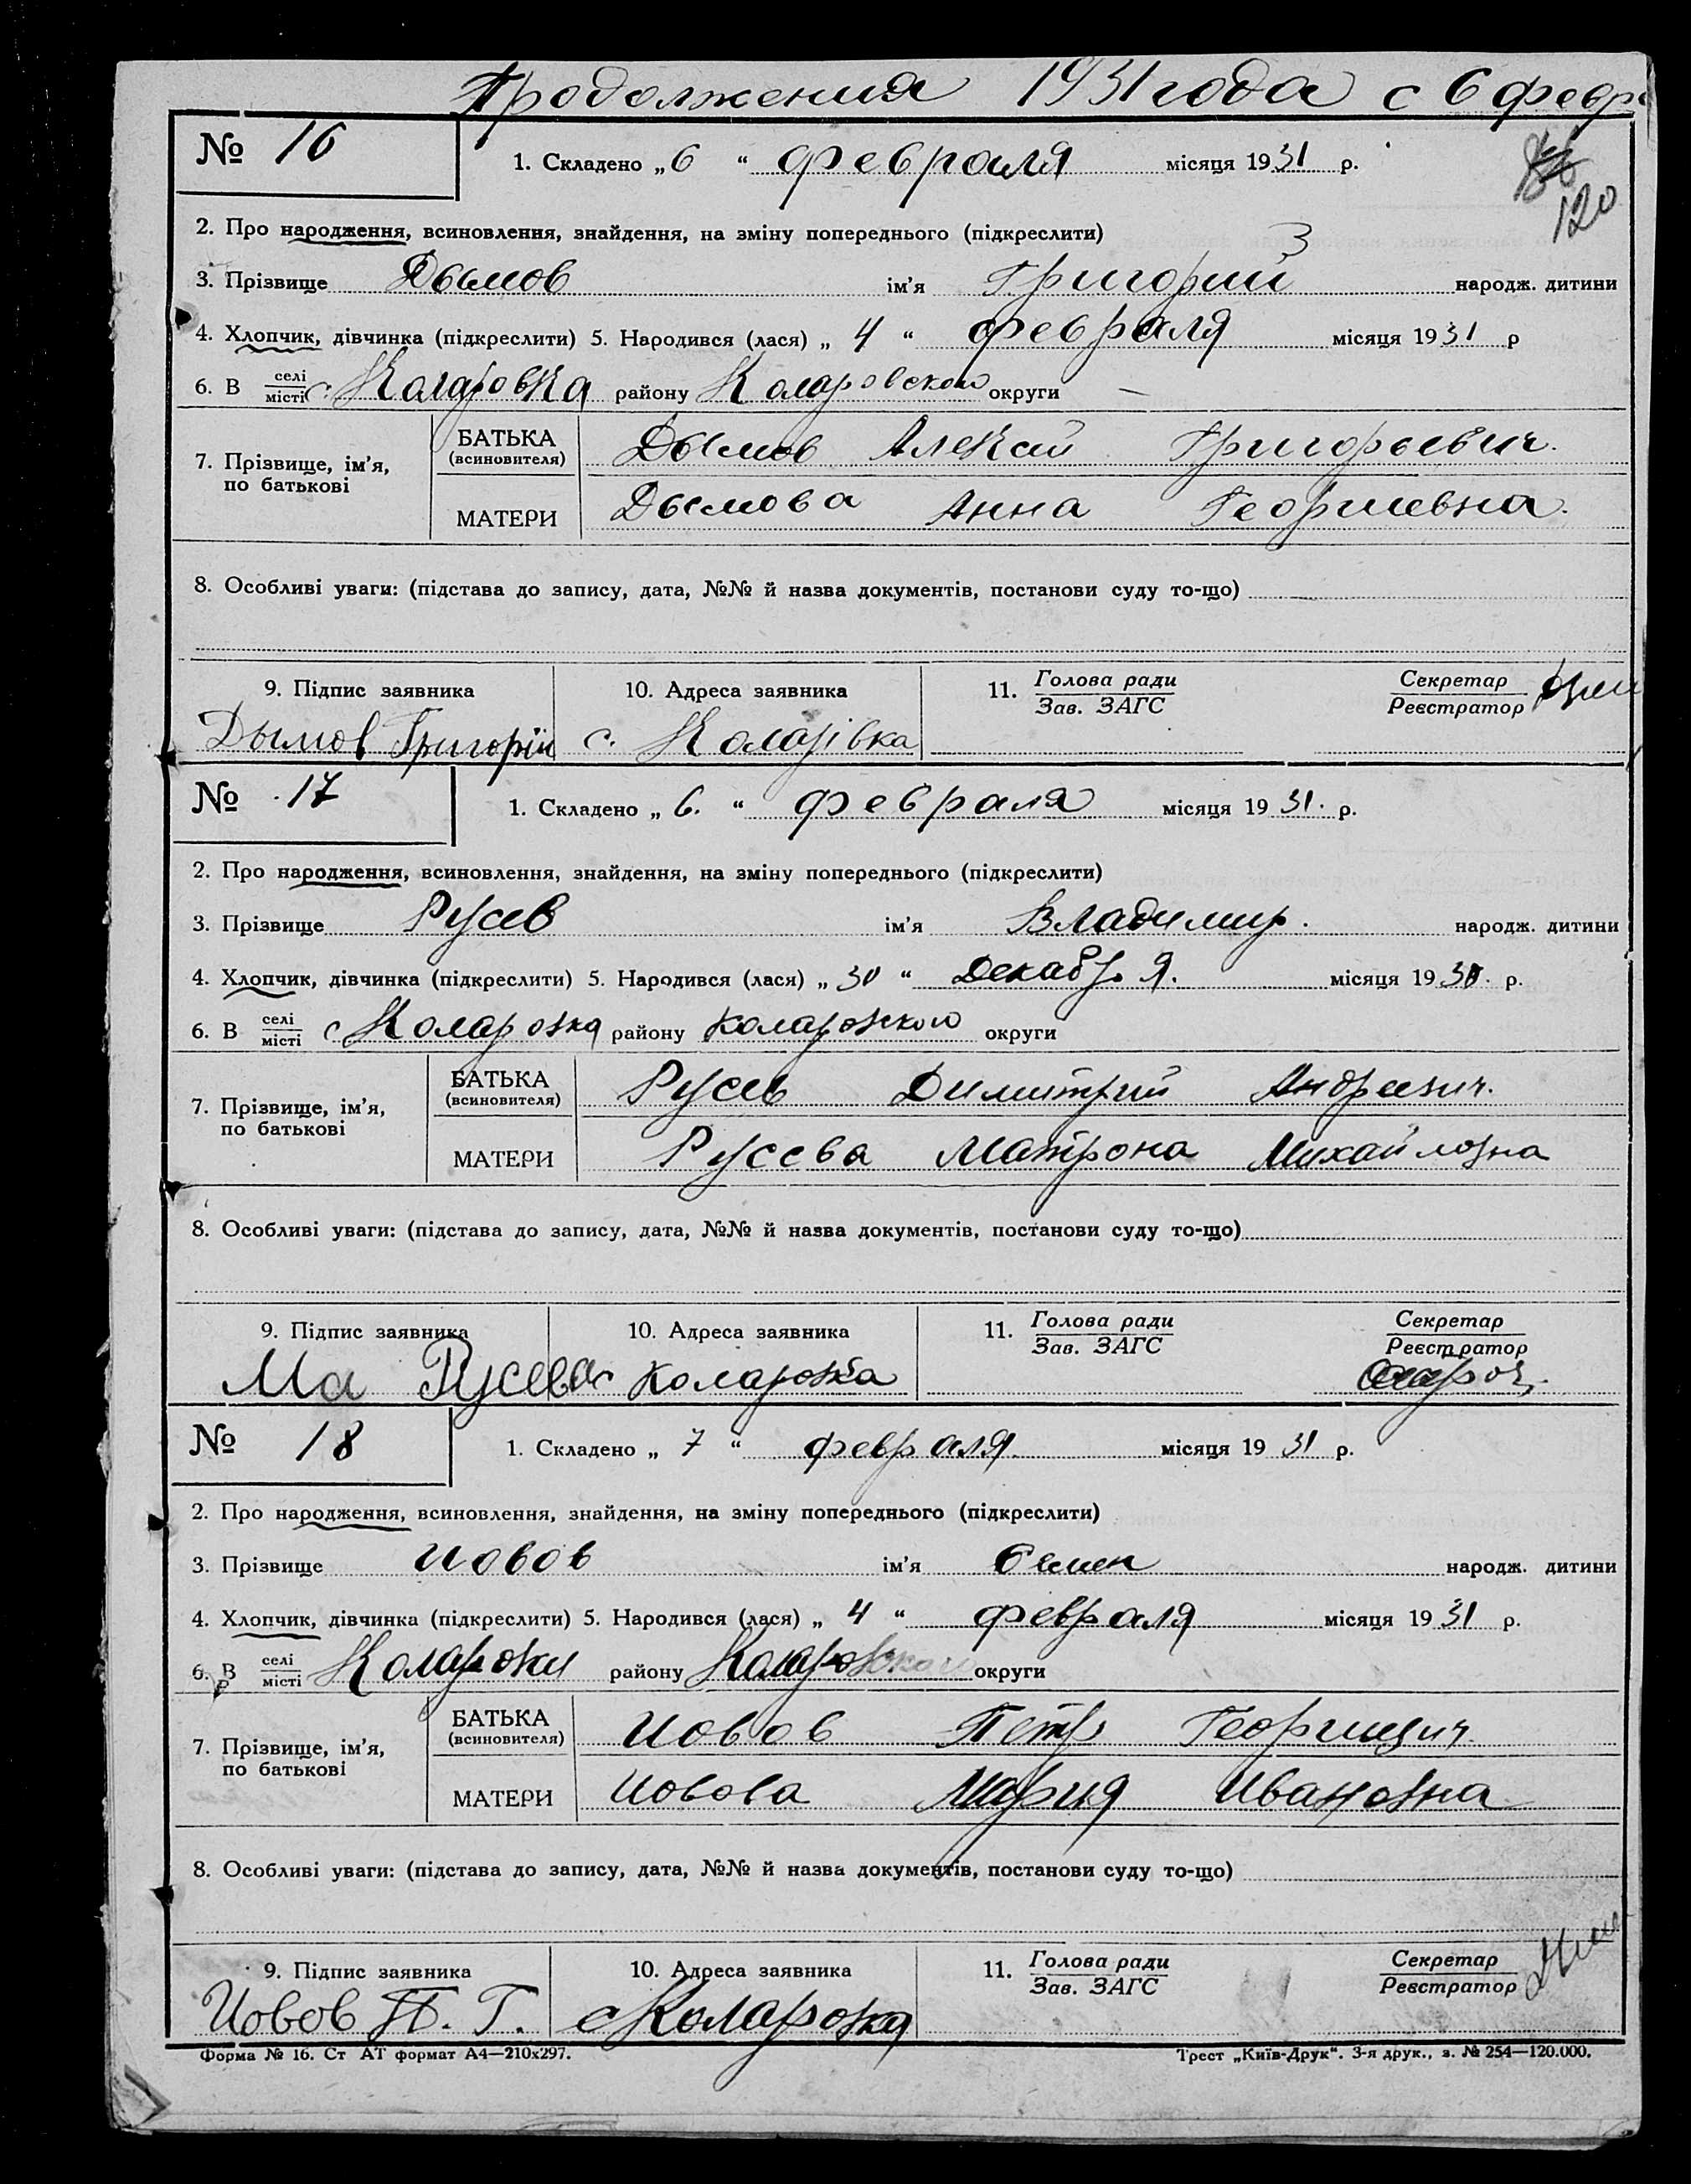 Продолжения 1931 года с 6 февр
№ 16
1. Складено „ 6 “ февраля місяця 1931 р.
120
2. Про народження, всиновлення, знайдення, на зміну попереднього (підкреслити)
3
3. Прізвище Дымов ім'я Григорий народж. дитини
4. Хлопчик, дівчинка (підкреслити) 5. Народився (лася) „ 4 “ февраля місяця 1931 р
6. В селі місті с. Коларовка району Коларовского округи —
7. Прізвище, ім'я, по батькові БАТЬКА (всиновителя) Дымов Алексей Григорьевич.
МАТЕРИ Дымова Анна Георгиевна.
8. Особливі уваги: (підстава до запису, дата, №№ й назва документів, постанови суду то-що)
9. Підпис заявника 10. Адреса заявника 11. Голова ради Зав. ЗАГС Секретар Реєстратор
Дымов Григорій с. Коларівка
№ 17
1. Складено „ 6. “ февраля місяця 1931. р.
2. Про народження, всиновлення, знайдення, на зміну попереднього (підкреслити)
3. Прізвище Русев ім'я Владимир. народж. дитини
4. Хлопчик, дівчинка (підкреслити) 5. Народився (лася) „ 30 “ Декабря. місяця 1930. р.
6. В селі місті с Коларовка району Коларовского округи
7. Прізвище, ім'я, по батькові БАТЬКА (всиновителя) Русев Димитрий Андреевич.
МАТЕРИ Русева Матрона Михайловна
8. Особливі уваги: (підстава до запису, дата, №№ й назва документів, постанови суду то-що)
9. Підпис заявника 10. Адреса заявника 11. Голова ради Зав. ЗАГС Секретар Реєстратор
Ма Русева с Коларовка
№ 18
1. Складено „ 7 “ февраля місяця 1931 р.
2. Про народження, всиновлення, знайдення, на зміну попереднього (підкреслити)
3. Прізвище Иовов ім'я Семен народж. дитини
4. Хлопчик, дівчинка (підкреслити) 5. Народився (лася) „ 4 “ февраля місяця 1931 р.
6. В селі місті Коларовки району Коларовского округи
7. Прізвище, ім'я, по батькові БАТЬКА (всиновителя) Иовов Петр Георгиевич.
МАТЕРИ Иовова Мария Ивановна
8. Особливі уваги: (підстава до запису, дата, №№ й назва документів, постанови суду то-що)
9. Підпис заявника 10. Адреса заявника 11. Голова ради Зав. ЗАГС Секретар Реєстратор
Иовов П. Г. с Коларовка
Форма № 16. Ст АТ формат А4—210х297. Трест „Київ-Друк“. 3-я друк., з. № 254—120.000.